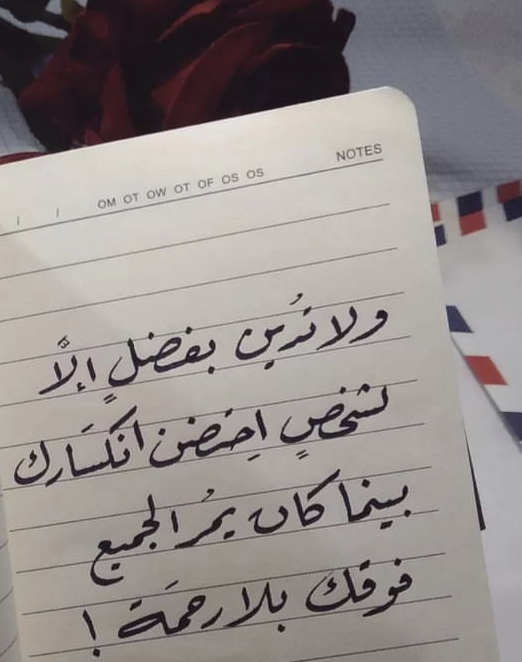 NOTES
OM OT OW OT OF OS OS
ولا تُدين بفضلٍ إلّا
لشخصٍ اِحتضن انكسَارك
بينما كان يمُر الجميع
فوقك بلا رحمَة !